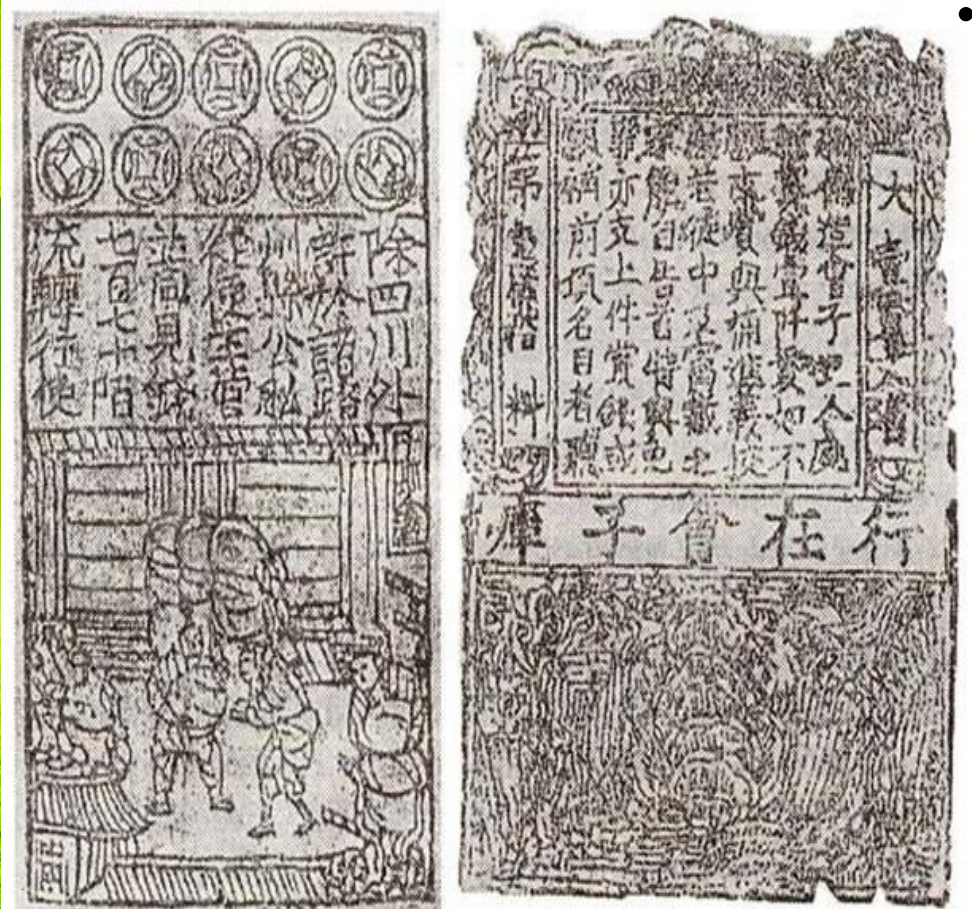 除四川外
許於諸路
州縣公私
從便主管
並同見錢
七百七十陌
流轉行使
敕偽造會子犯人處
斬賞錢壹阡貫如不
願支賞與補進義校
尉若徒中及窩藏之
家能自告首特與免
罪亦支上件賞錢或
願補前項名目者聽
大
料
行在會子庫